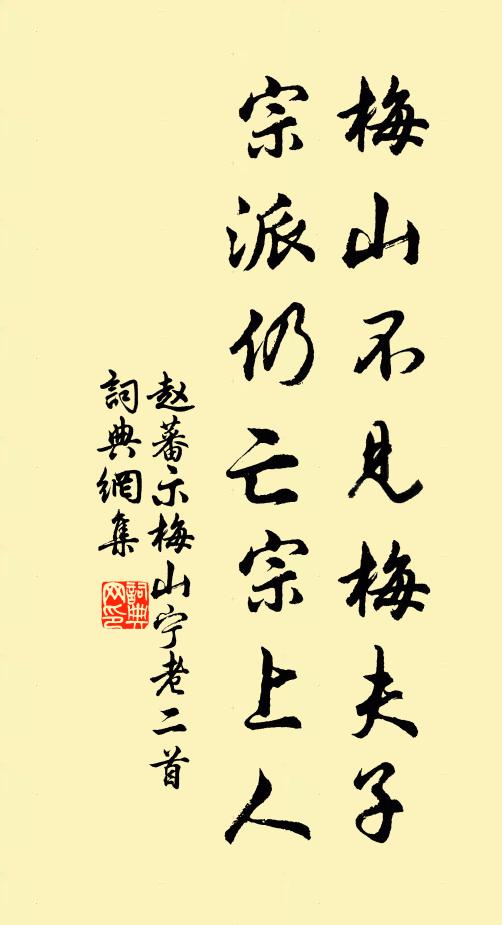 梅山不見梅夫子
宗派仍亡宗上人
赵蕃示梅山宁老二首
詞典網集
詞典网印